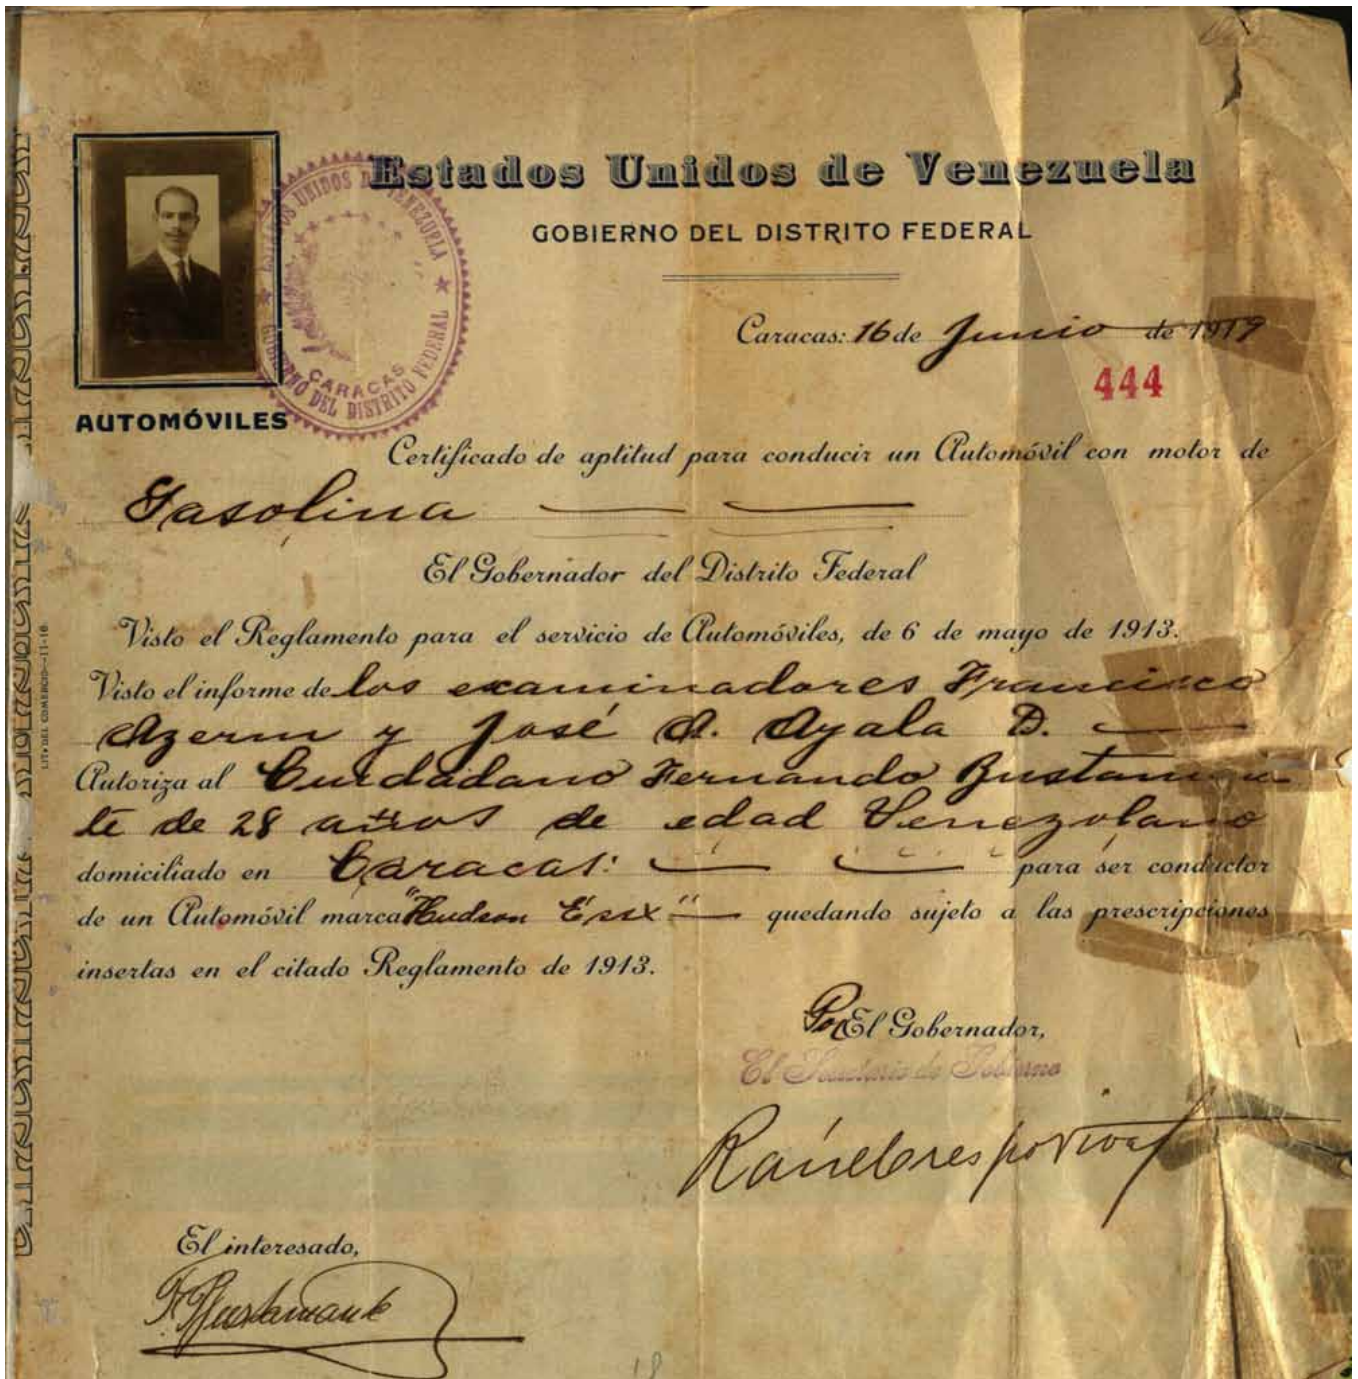 Estados Unidos de Venezuela
GOBIERNO DEL DISTRITO FEDERAL
Caracas: 16 de Junio de 1919
444
ESTADOS UNIDOS DE VENEZUELA
GOBIERNO DEL DISTRITO FEDERAL
CARACAS
AUTOMÓVILES
Certificado de aptitud para conducir un Automóvil con motor de
Gasolina
El Gobernador del Distrito Federal
Visto el Reglamento para el servicio de Automóviles, de 6 de mayo de 1913.
Visto el informe de los examinadores Francisco
Azerm y José A. Ayala D.
Autoriza al Ciudadano Fernando Bustaman
te de 28 años de edad Venezolano
domiciliado en Caracas: para ser conductor
de un Automóvil marca "Hudson Esix" quedando sujeto a las prescripciones
insertas en el citado Reglamento de 1913.
Por El Gobernador,
El Secretario de Gobierno
El interesado,
F. Bustamante
LIT. DEL COMERCIO